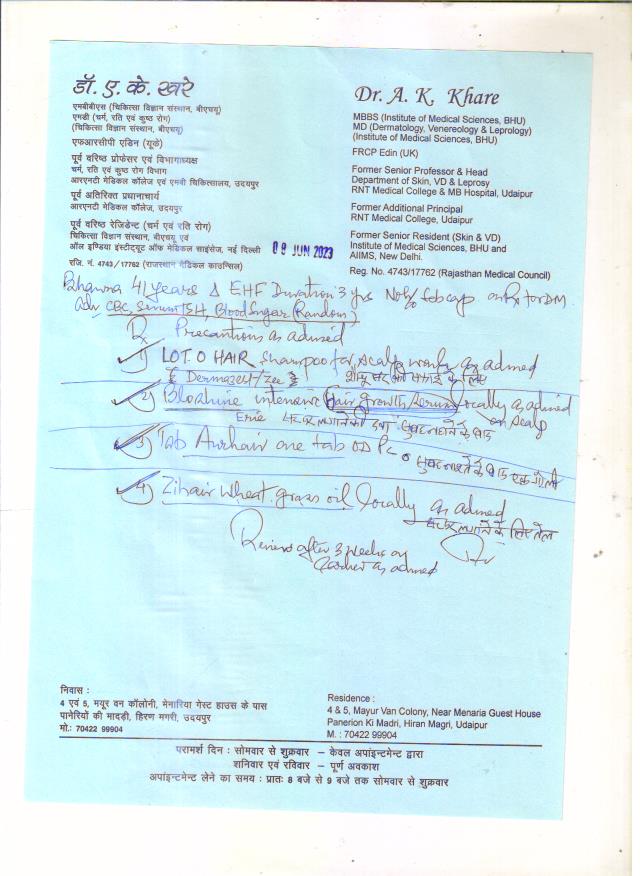 डॉ. ए. के. खरे
एमबीबीएस (चिकित्सा विज्ञान संस्थान, बीएचयू)
एमडी (चर्म, रति एवं कुष्ठ रोग)
(चिकित्सा विज्ञान संस्थान, बीएचयू)
एफआरसीपी एडिन (यूके)
पूर्व वरिष्ठ प्रोफेसर एवं विभागाध्यक्ष
चर्म, रति एवं कुष्ठ रोग विभाग
आरएनटी मेडिकल कॉलेज एवं एमबी चिकित्सालय, उदयपुर
पूर्व अतिरिक्त प्रधानाचार्य
आरएनटी मेडिकल कॉलेज, उदयपुर
पूर्व वरिष्ठ रेजिडेन्ट (चर्म एवं रति रोग)
चिकित्सा विज्ञान संस्थान, बीएचयू एवं
ऑल इण्डिया इंस्टीट्यूट ऑफ मेडिकल साइंसेज, नई दिल्ली
रजि. नं. 4743/17762 (राजस्थान मेडिकल काउन्सिल)
Dr. A. K. Khare
MBBS (Institute of Medical Sciences, BHU)
MD (Dermatology, Venereology & Leprology)
(Institute of Medical Sciences, BHU)
FRCP Edin (UK)
Former Senior Professor & Head
Department of Skin, VD & Leprosy
RNT Medical College & MB Hospital, Udaipur
Former Additional Principal
RNT Medical College, Udaipur
Former Senior Resident (Skin & VD)
Institute of Medical Sciences, BHU and
AIIMS, New Delhi.
Reg. No. 4743/17762 (Rajasthan Medical Council)
09 JUN 2023
Bhawna 41 years Δ EHF Duration 3 yrs on Rx for DM
Adv CBC, Serum TSH, Blood Sugar (Random)
Rx Precautions as advised
1) LOT. O HAIR Shampoo for scalp as advised
2) intensive hair growth serum locally as advised
on scalp
3) Tab one tab OD PC
4) Zihair wheat grass oil locally as advised
Review after 3 weeks or
earlier as advised
निवास :
4 एवं 5, मयूर वन कॉलोनी, मेनारिया गेस्ट हाउस के पास
पानेरियों की मादड़ी, हिरण मगरी, उदयपुर
मो.: 70422 99904
Residence :
4 & 5, Mayur Van Colony, Near Menaria Guest House
Panerion Ki Madri, Hiran Magri, Udaipur
M. : 70422 99904
परामर्श दिन : सोमवार से शुक्रवार – केवल अपांइन्टमेन्ट द्वारा
शनिवार एवं रविवार – पूर्ण अवकाश
अपांइन्टमेन्ट लेने का समय : प्रातः 8 बजे से 9 बजे तक सोमवार से शुक्रवार